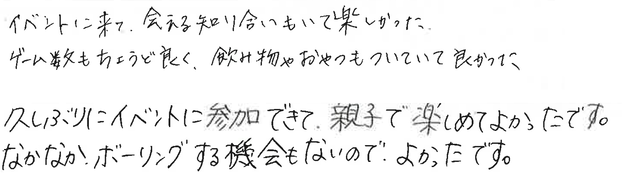 イベントに来て、会える知り合いもいて楽しかった。
ゲーム数もちょうど良く、飲み物やおやつもついていて良かった、
久しぶりにイベントに参加できて、親子で楽しめてよかったです。
なかなか、ボーリングする機会もないので、よかったです。